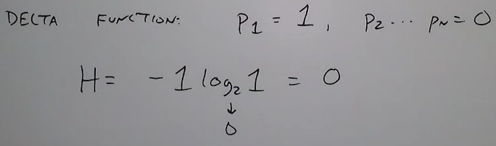 DELTA FUNCTION: P1 = 1, P2 ... PN = 0
H = -1 log2 1 = 0
↓
0